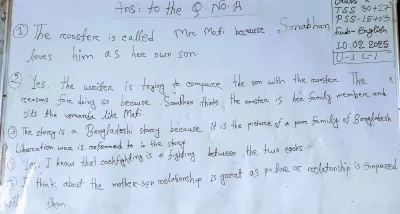 Ans: to the Q. No. A
① The rooster is called Mr. Moti because Sonabhan
loves him as her own son.
② Yes, the writer is trying to compare the son with the rooster. The
reasons for doing so because Sonabhan thinks the rooster is her family member and
sits the veranda like Moti.
③ The story is a Bangladeshi story because it is the picture of a poor family of Bangladesh
Liberation war is referred to in the story
④ Yes, I know that cockfighting is a fighting between the two cocks.
⑤ I think about the mother-son relationship is great as no love or relationship is compared
them
TSS
PSS-15+03
Sub-English
10.02.2025
U-1 L-1